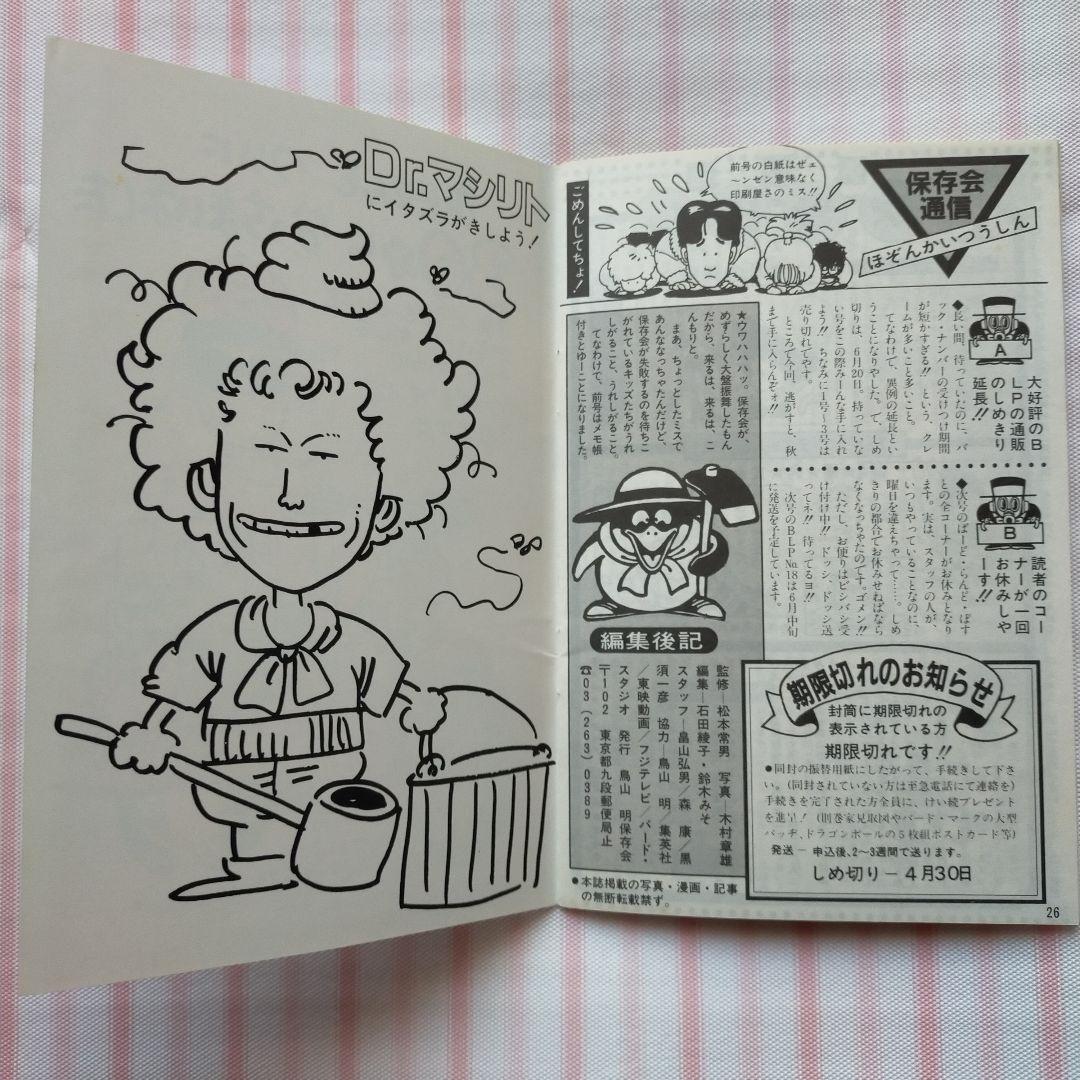 Dr.マシリト
にイタズラがきしよう!
保存会
通信
ほぞんかいつうしん
前号の白紙はぜェ
〜ンゼン意味なく
印刷屋さのミス!!
ごめんしてちょ!
A
大好評のB
LPの通販
のしめきり
延長!!
◆長い間、待っていたのに、バ
ック・ナンバーの受けつけ期間
が短かすぎる!! という、クレ
ームが多いこと多いこと。
てなわけで、異例の延長とい
うことになりやした。で、しめ
切りは、6月20日。持っていな
い号をこの際みーんな手に入れ
よう!! ちなみに1号〜3号は
売り切れでやす。
ところで今回、逃がすと、秋
まで手に入らんぞォ!!
B
読者のコー
ナーが一回
お休みしや
ーす!!
◆次号のばーど・らんど・ぽす
との全コーナーがお休みとなり
ます。実は、スタッフの人が、
いつもやっていることなのに、
曜日を違えちゃって……。しめ
きりの都合でお休みせねばなら
なくなっちゃたのです。ゴメン!!
ただし、お便りはビンバン受
け付け中!! ドッシ、ドッシ送
ってネ!! 待ってるヨ!!
次号のBLPNo.18は6月中旬
に発送を予定しています。
★ウワハハハッ。保存会が、
めずらしく大盤振舞したもん
だから、来るは、来るは、こ
んもりと。
まあ、ちょっとしたミスで
あんななっちゃたんだけど、
保存会が失敗するのを待ちこ
がれているキッズたちがうれ
しがること、うれしがること。
てなわけで、前号はメモ帳
付きとゆーことになりました。
編集後記
監修―松本常男 写真―木村章雄
編集―石田綾子・鈴木みそ
スタッフ―畠山弘男/森 康/黒
須一彦 協力―鳥山 明/集英社
/東映動画/フジテレビ/バード・
スタジオ 発行 鳥山 明保存会
〒102 東京都九段郵便局止
☎03(263)0389
●本誌掲載の写真・漫画・記事
の無断転載禁ず。
期限切れのお知らせ
封筒に期限切れの
表示されている方
期限切れです!!
●同封の振替用紙にしたがって、手続きして下さ
い。(同封されていない方は至急電話にて連絡を)
手続きを完了された方全員に、けい続プレゼント
を進呈! (則巻家見取図やバード・マークの大型
バッヂ、ドラゴンボールの5枚組ポストカード等)
発送― 申込後、2〜3週間で送ります。
しめ切り―4月30日
26